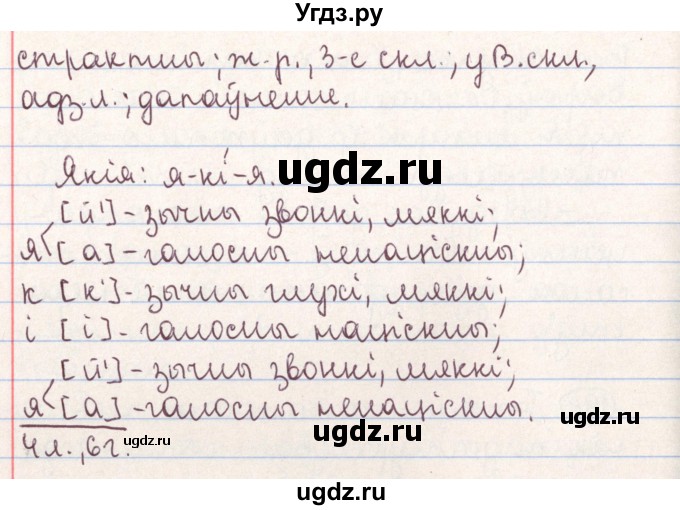 Угдз.ру
страктны; ж.р., 3-е скл.; у В.скл.,
адз.л.; дапаўненне.
Якія: я-кі́-я.
ugdz.ru
[й'] - зычны звонкі, мяккі;
я< [а] - галосны ненаціскны;
к [к'] - зычны глухі, мяккі;
і [і] - галосны націскны;
[й'] - зычны звонкі, мяккі;
я< [а] - галосны ненаціскны.
4л., 6г.
ugdz.ru
ugdz.ru
ugdz.ru
ugdz.ru
ugdz.ru
ugdz.ru
ugdz.ru
ugdz.ru